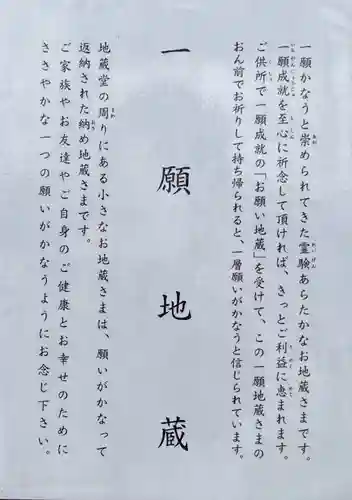 一願かなうと崇められてきた霊験あらたかなお地蔵さまです。
一願成就を至心に祈念して頂ければ、きっとご利益に恵まれます。
ご供所で一願成就の「お願い地蔵」を受けて、この一願地蔵さまの
おん前でお祈りして持ち帰られると、一層願いがかなうと信じられています。
一願地蔵
地蔵堂の周りにある小さなお地蔵さまは、願いがかなって
返納された納め地蔵さまです。
ご家族やお友達やご自身のご健康とお幸せのために
ささやかな一つの願いがかなうようにお念じ下さい。